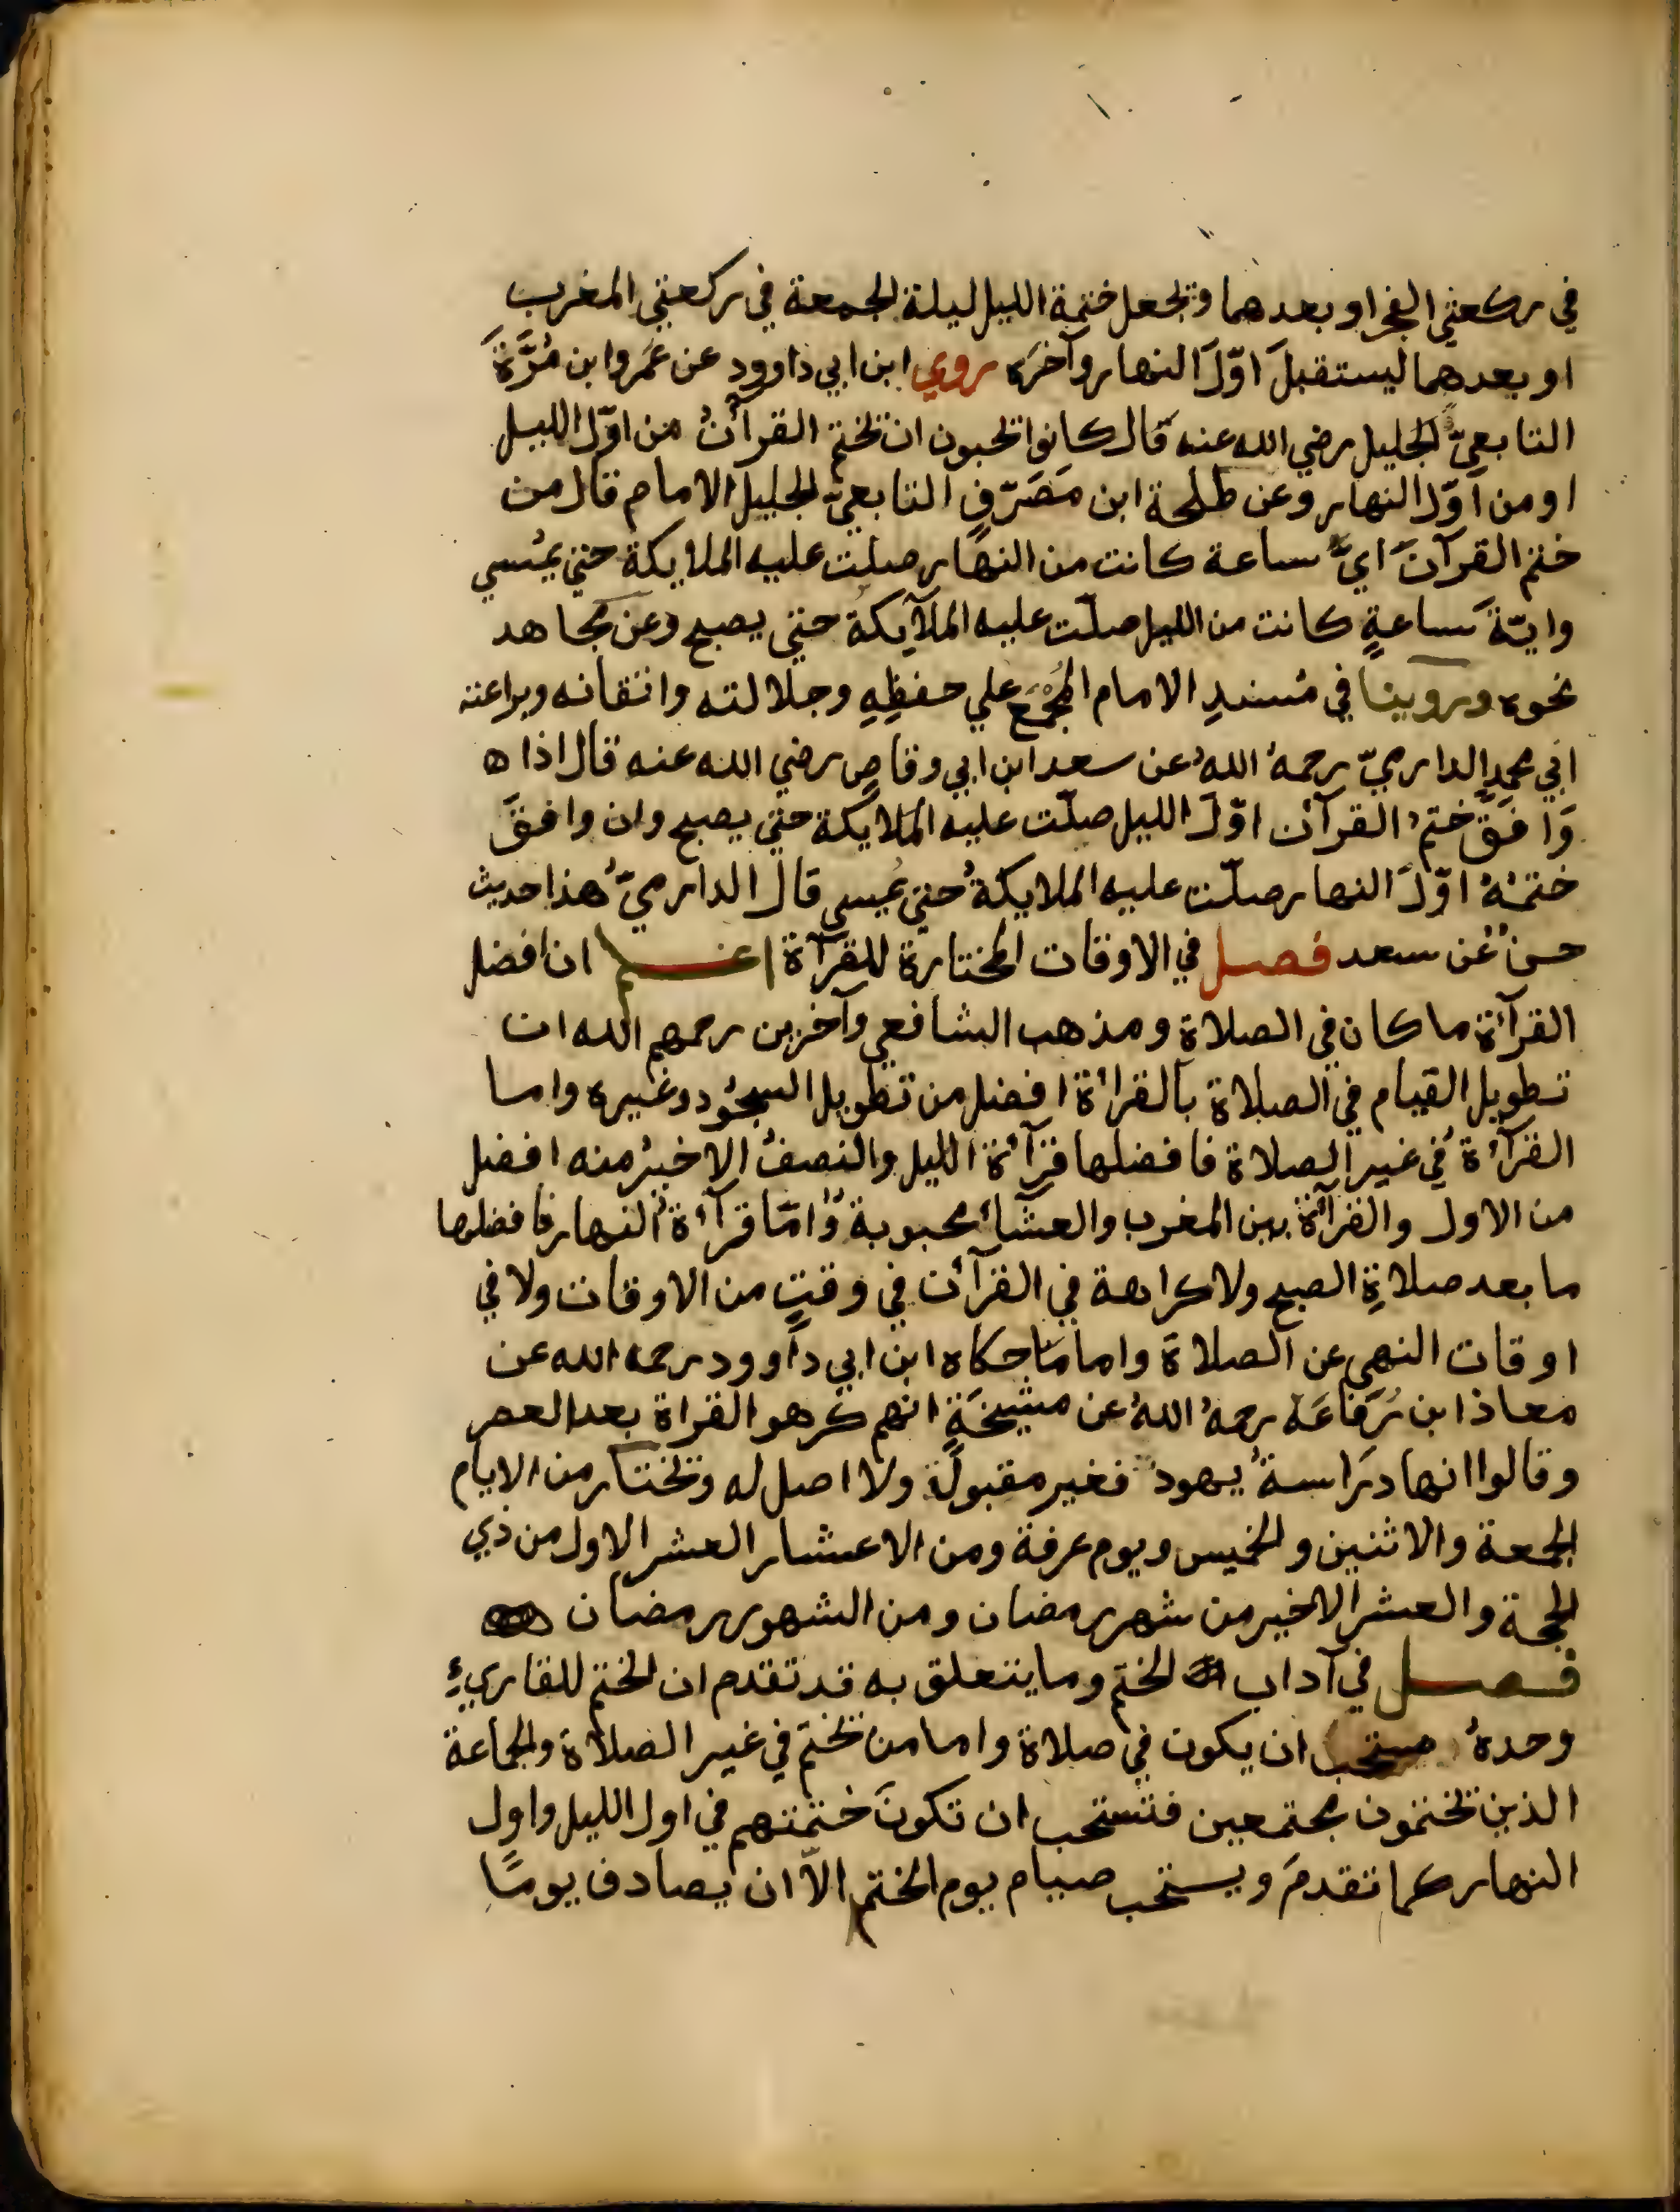 في ركعتي الفجر او بعدهما وتجعل ختمة الليل ليلة الجمعة في ركعتي المغرب
او بعدهما ليستقبلَ اوّلَ النهار وآخرَه روي ابن ابي داوود عن عَمَرو ابن مُرَّةَ
التابعيّ الجليل رضي الله عنه قال كانوا تحبون ان تختم القرآنُ من اوّل الليل
او من اوّل النهار وعن طلحة ابن مَصَرّفٍ التابعيّ الجليل الامام قال من
ختم القرآن ايَّ ساعة كانت من النهار صلّت عليه الملايكة حتي يمُسي
وايّةَ ساعةٍ كانت من الليل صلّت عليه الملآيكةُ حتي يصبح وعن مجاهد
نحوه وروينا في مُسندِ الامام المُجْمَعِ علي حفظِهِ وجلالته واتقانه وبراعته
ابي محمدٍ الدارميّ رحمهُ اللهُ عن سعد ابن ابي وقاصٍ رضي الله عنه قال اذا ه
وَافَقَ ختمُ القرآن اوّلَ الليل صلّت عليه الملايكة حتي يصبح وان وافقَ
ختمُهُ اوّلَ النهار صلّت عليه الملايكةُ حتي يُمسي قال الدارميّ هذا حديث
حسنٌ عن سعد فصل في الاوقات المختارة للقرآة اعلم ان افضل
القرآئة ما كان في الصلاة ومذهب الشافعي وآخرين رحمهم الله ان
تطويل القيام في الصلاة بالقرائة افضل من تطويل السجُود وغيره واما
القرآئة في غير الصلاة فافضلها قرآئة الليل والنصفُ الاخيرُ منه افضل
من الاول والقرآئة بين المغرب والعشآئ محبوبة وَامّا قرآئة النهار فافضلها
ما بعد صلاةِ الصبح ولا كراهة في القرآئن في وقتٍ من الاوقات ولا في
اوقات النهي عن الصلاة واما ما حكاه ابن ابي داوود رحمه الله عن
معاذ ابن رُفَاعَة رحمهُ اللهُ عن مشيخَةٍ انهم كرهو القراة بعد العصر
وقالوا انها دِرَاسةُ يهود فغير مقبولة ولا اصل له وتختار من الايام
الجمعة والاثنين والخميس ويوم عرفة ومن الاعشار العشر الاول من ذي
الحجة والعشر الاخير من شهر رمضان ومن الشهور رمضان
فصل في آداب الختم وما يتعلق به قد تقدم ان الختم للقاريءِ
وحدهُ مستحب ان يكون في صلاة واما من تختم في غير الصلاة والجماعة
الذين تختمون مجتمعين فتستحب ان تكونَ ختمتهم في اول الليل واول
النهار كما تقدمَ ويستحب صيام يوم الختم الاّ ان يصادف يومًا